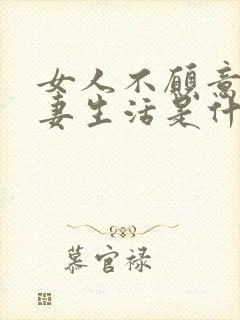 女人不愿意
妻生活是什
慕官禄